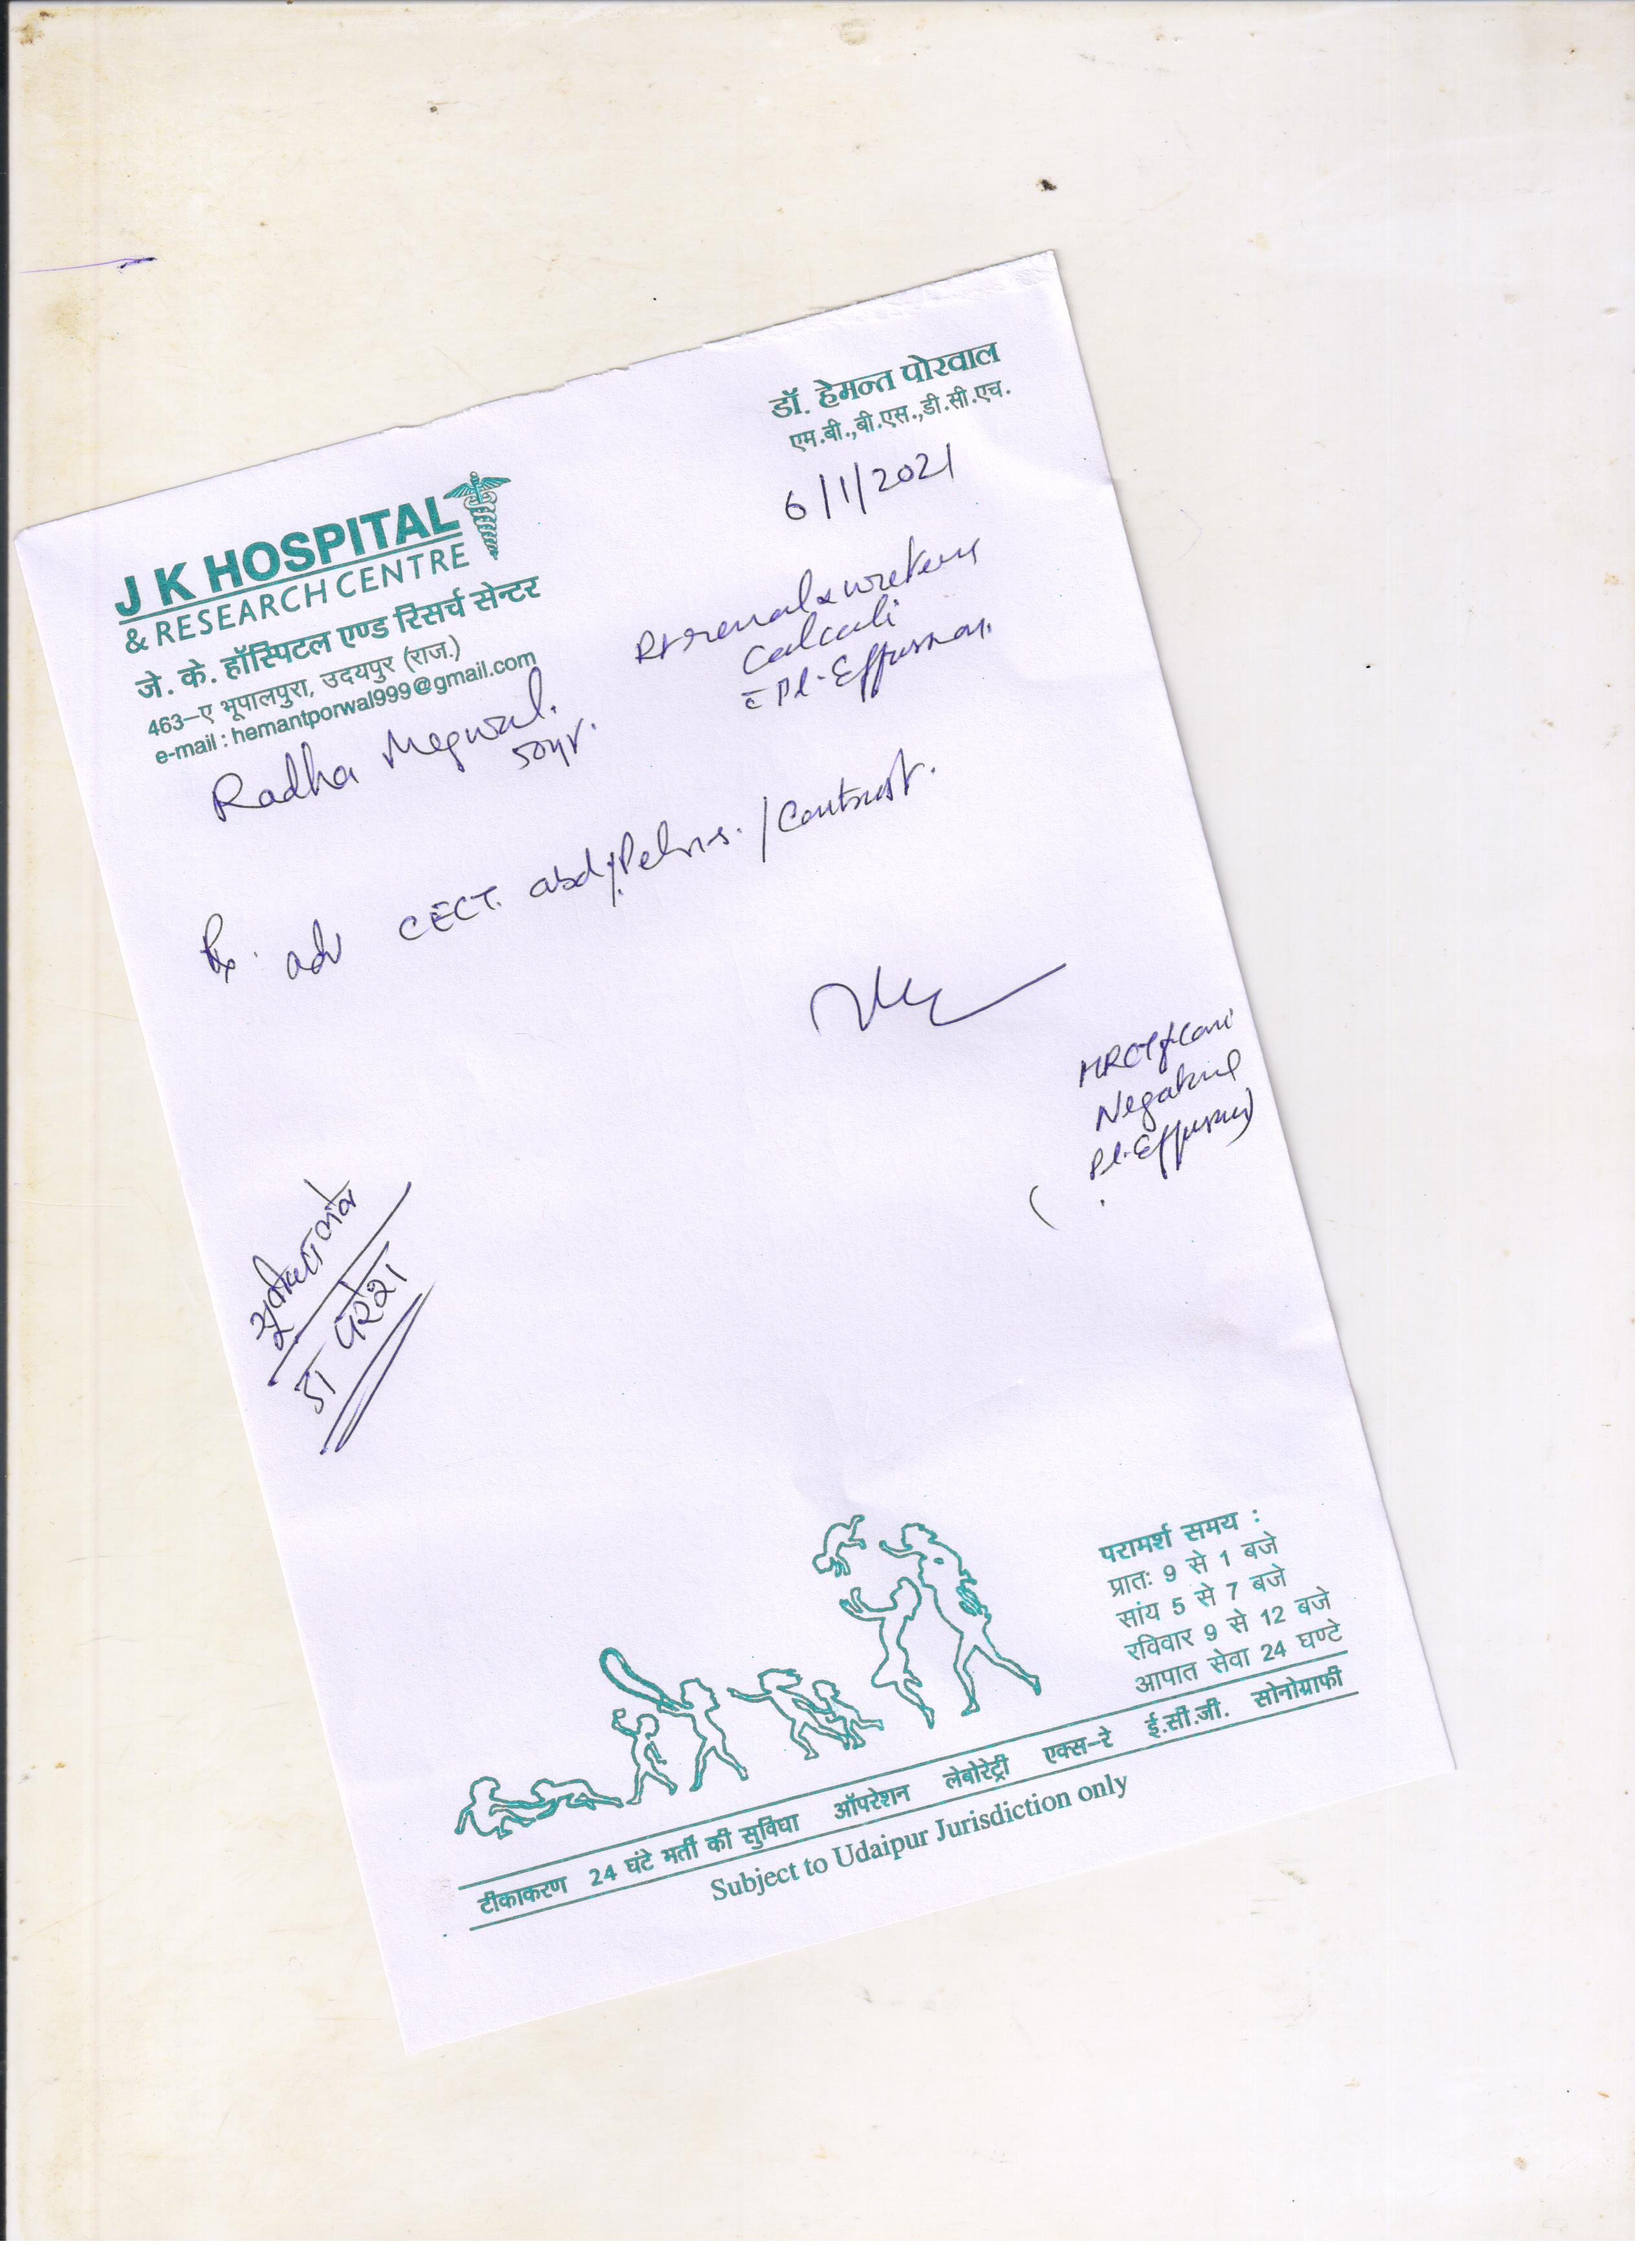 डॉ. हेमन्त पोरवाल
एम.बी.,बी.एस.,डी.सी.एच.
6/1/2021
J K HOSPITAL
& RESEARCH CENTRE
जे. के. हॉस्पिटल एण्ड रिसर्च सेन्टर
463-ए भूपालपुरा, उदयपुर (राज.)
e-mail : hemantporwal999@gmail.com
Rt renal & ureteric
Calculi
c̄ Pl. Effusion.
Radha Megwal.
50yr.
Rx. adv CECT. abd/Pelvis. /Contrast.
Negative
Pl. Effusion)
परामर्श समय :
प्रातः 9 से 1 बजे
सांय 5 से 7 बजे
रविवार 9 से 12 बजे
आपात सेवा 24 घण्टे
टीकाकरण 24 घंटे भर्ती की सुविधा ऑपरेशन लेबोरेट्री एक्स-रे ई.सी.जी. सोनोग्राफी
Subject to Udaipur Jurisdiction only